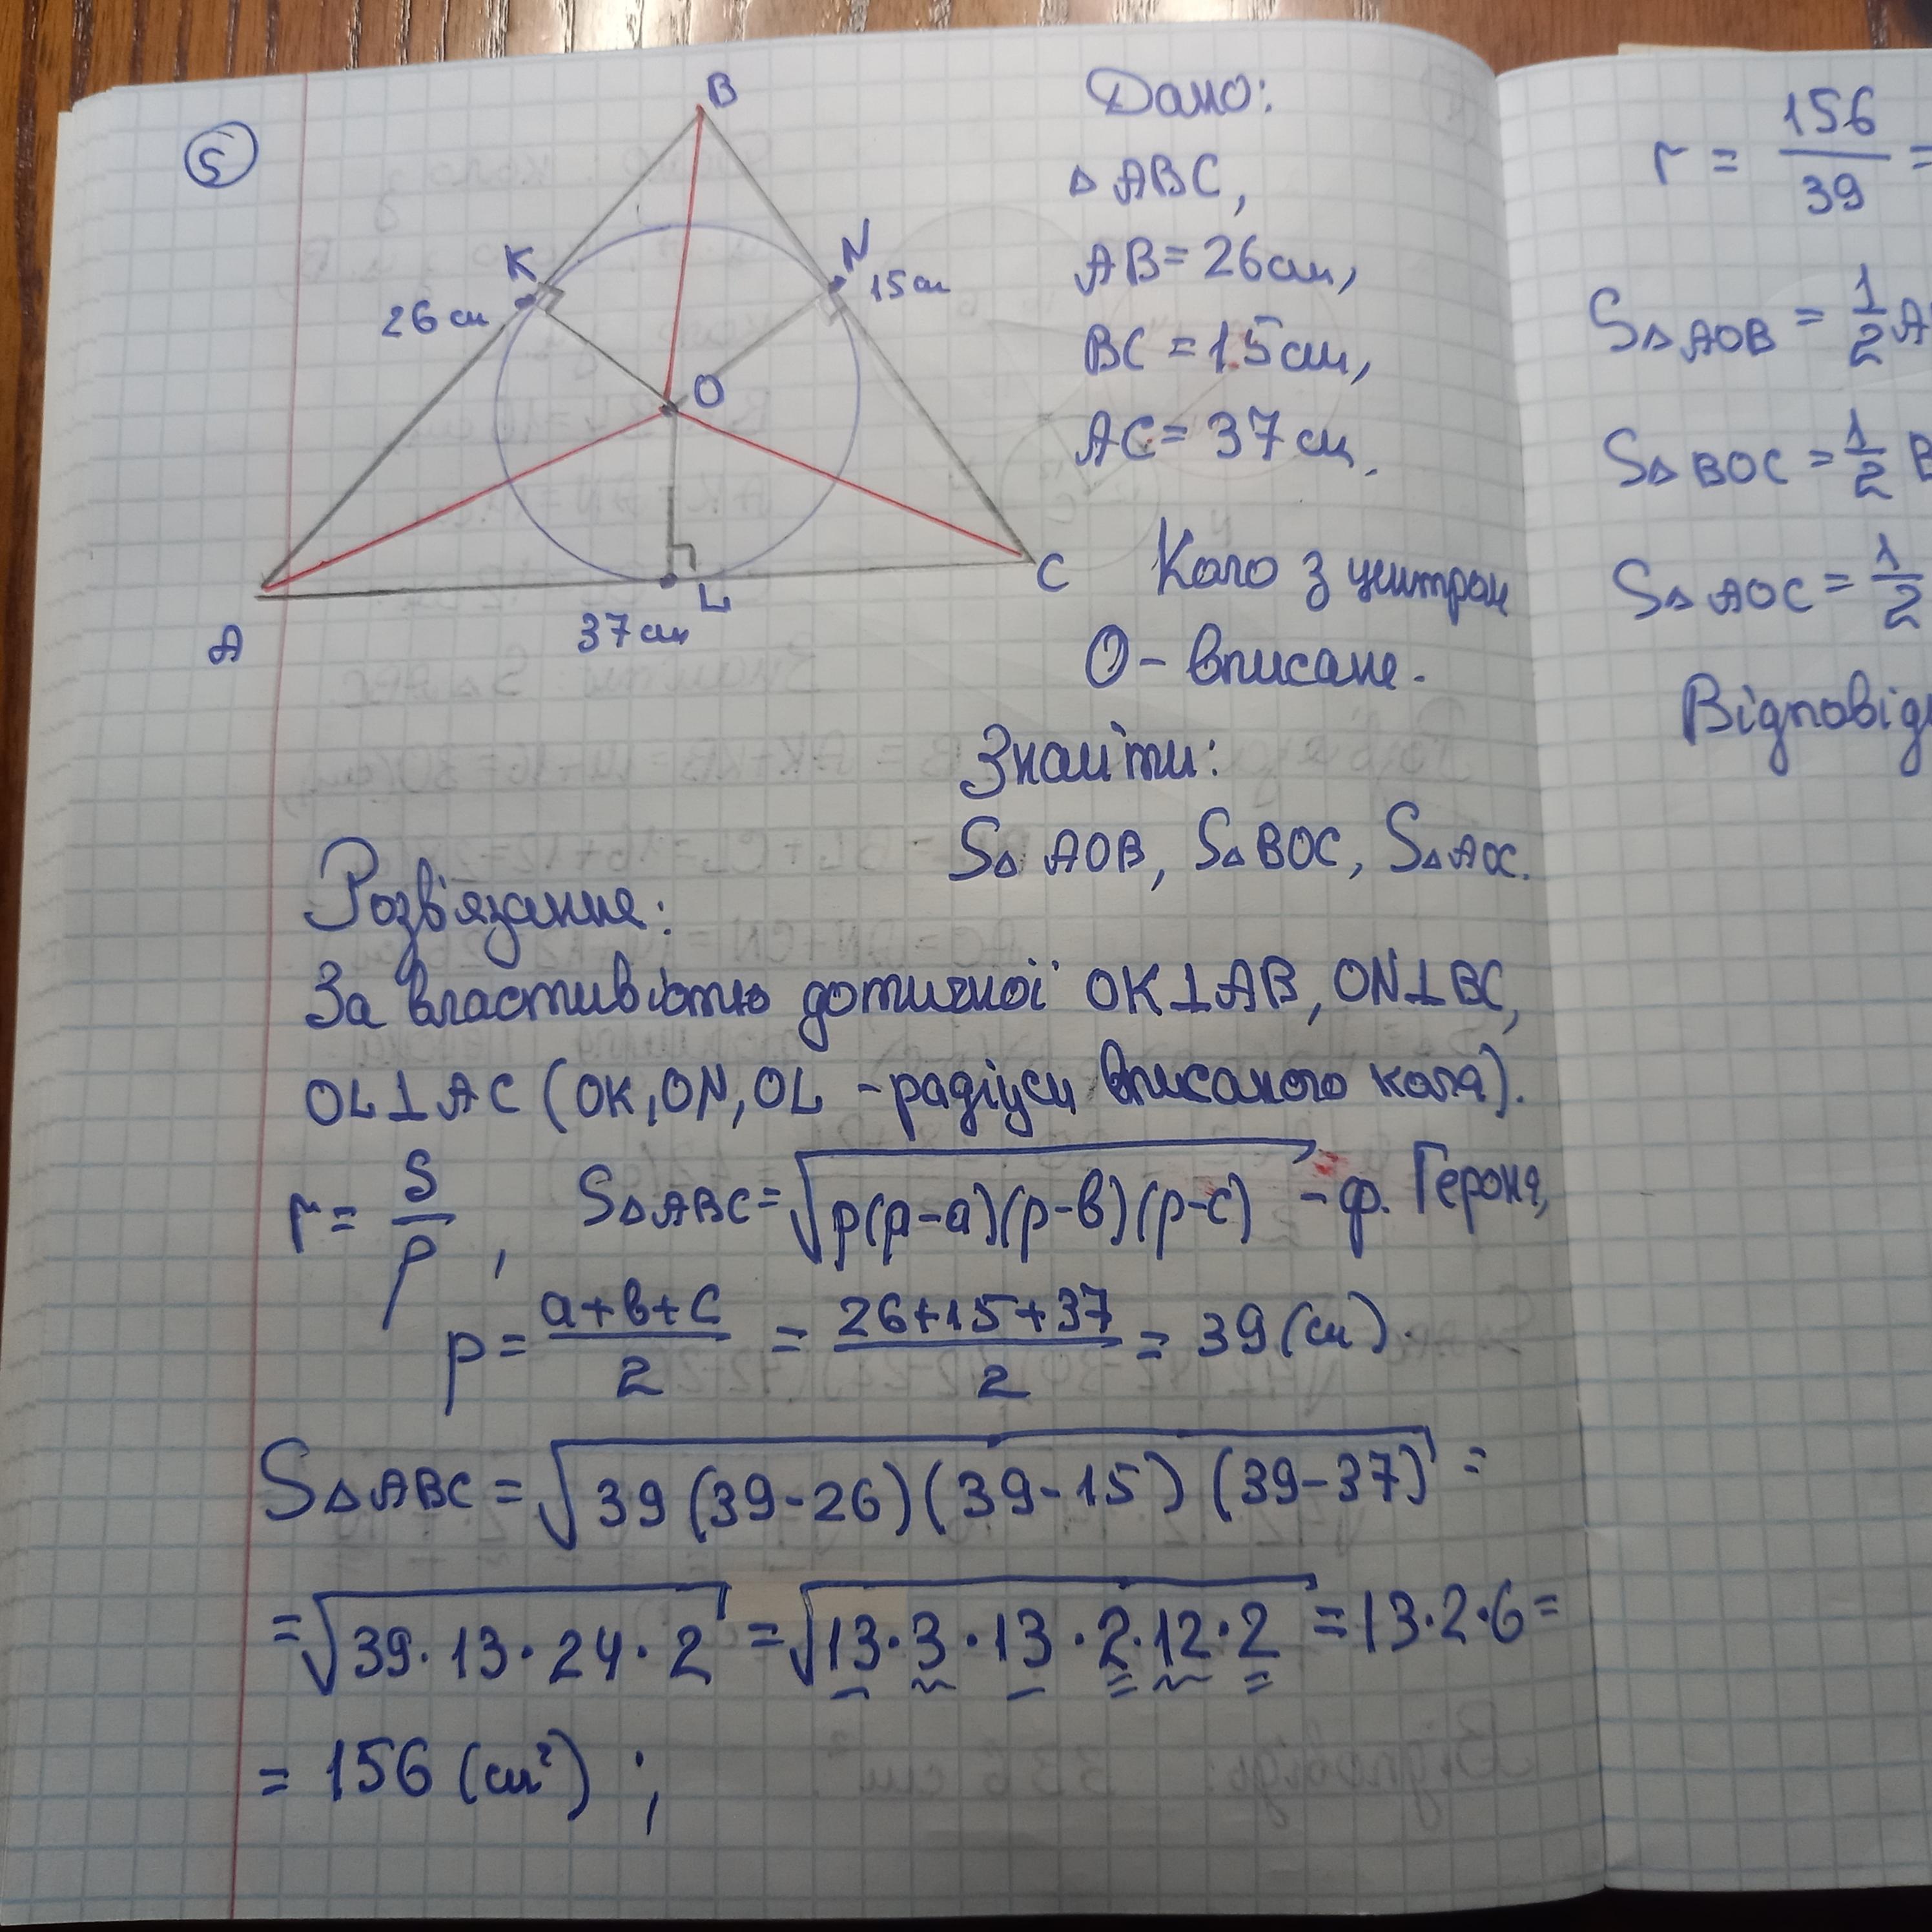 5
B
K
N
26 см
15 см
O
A
L
C
37 см
Дано:
△ ABC,
AB = 26 см,
BC = 15 см,
AC = 37 см.
Коло з центром
O – вписане.
Знайти:
S△ AOB, S△ BOC, S△ AOC.
Розв'язання:
За властивістю дотичної OK⊥AB, ON⊥BC,
OL⊥AC (OK, ON, OL – радіуси вписаного кола).
r = S/p, S△ABC = √(p(p-a)(p-в)(p-c)) – ф. Герона,
p = (a+в+c)/2 = (26+15+37)/2 = 39 (см).
S△ABC = √(39(39-26)(39-15)(39-37)) =
= √(39·13·24·2) = √(13·3·13·2·12·2) = 13·2·6 =
= 156 (см²) ;
r = 156/39 =
S△ AOB = 1/2 A
S△ BOC = 1/2 B
S△ AOC = 1/2
Відповідь